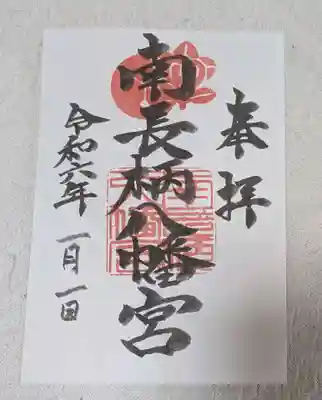 奉拝
南長柄八幡宮
令和六年 一月一日